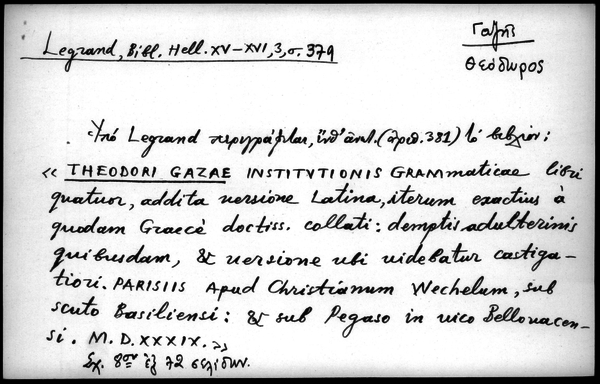 Γαζῆς
Θεόδωρος
Legrand, Bibl. Hell. XV-XVI, 3, σ. 379
Ὑπό Legrand περιγράφεται, (ἀριθ. 381) τό βιβλίον:
« THEODORI GAZAE INSTITVTIONIS GRAMMATICAE libri
quatuor, addita versione Latina, iterum exactius à
quodam Graecè doctiss. collati: demptis adulterinis
quibusdam, & versione ubi videbatur castiga-
tiori. PARISIIS Apud Christianum Wechelum, sub
scuto Basiliensi: & sub Pegaso in vico Bellovacen-
si. M. D. XXXIX. »
Σχ. 8ον ἐξ 72 σελίδων.